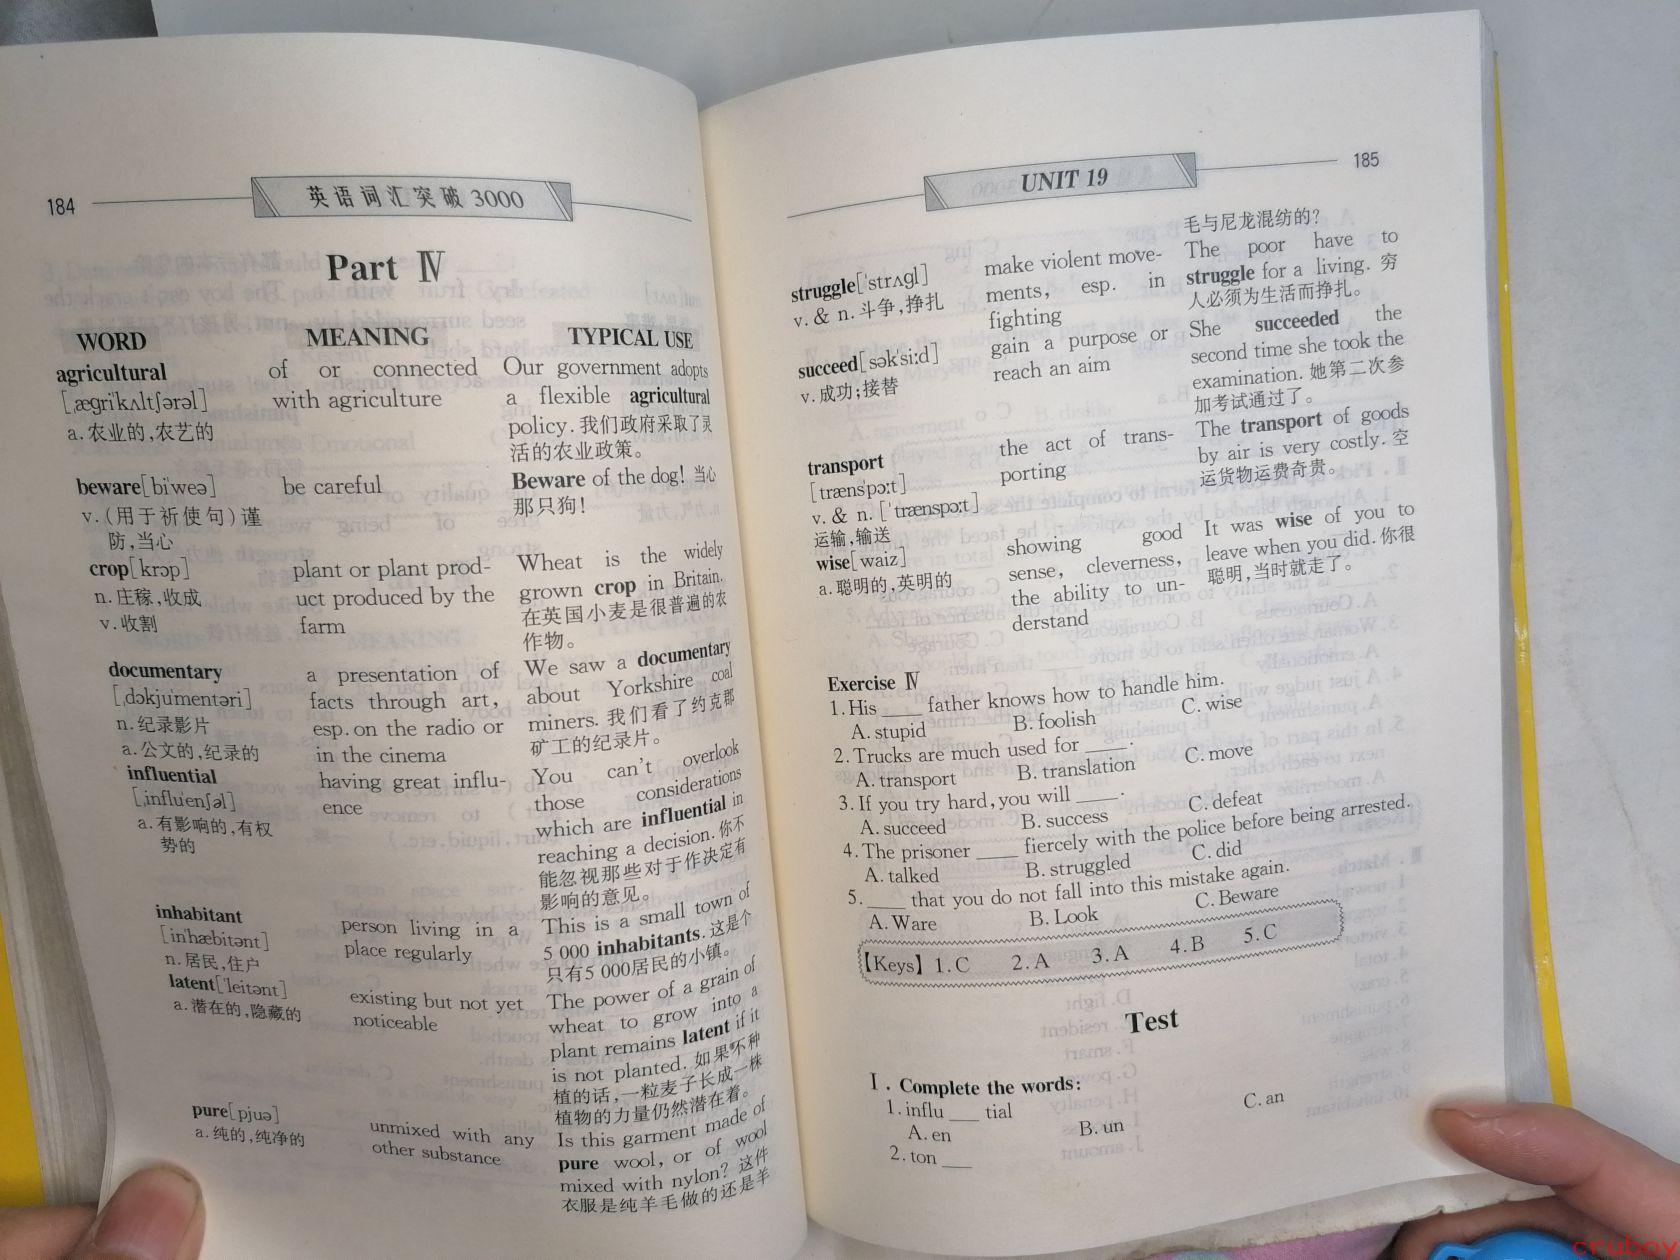 184
英语词汇突破 3000
Part Ⅳ
WORD
MEANING
TYPICAL USE
agricultural
[ˌægri'kʌltʃərəl]
a.农业的,农艺的
of or connected
with agriculture
Our government adopts
a flexible agricultural
policy.我们政府采取了灵
活的农业政策。
beware[bi'weə]
v.(用于祈使句)谨
防,当心
be careful
Beware of the dog! 当心
那只狗!
crop[krɔp]
n.庄稼,收成
v.收割
plant or plant prod-
uct produced by the
farm
Wheat is the widely
grown crop in Britain.
在英国小麦是很普遍的农
作物。
documentary
[ˌdɔkju'mentəri]
n.纪录影片
a.公文的,纪录的
a presentation of
facts through art,
esp. on the radio or
in the cinema
We saw a documentary
about Yorkshire coal
miners. 我们看了约克郡
矿工的纪录片。
influential
[ˌinflu'enʃəl]
a.有影响的,有权
势的
having great influ-
ence
You can't overlook
those considerations
which are influential in
reaching a decision.你不
能忽视那些对于作决定有
影响的意见。
inhabitant
[in'hæbitənt]
n.居民,住户
person living in a
place regularly
This is a small town of
5 000 inhabitants.这是个
只有5 000居民的小镇。
latent['leitənt]
a.潜在的,隐藏的
existing but not yet
noticeable
The power of a grain of
wheat to grow into a
plant remains latent if it
is not planted. 如果不种
植的话,一粒麦子长成一株
植物的力量仍然潜在着。
pure[pjuə]
a.纯的,纯净的
unmixed with any
other substance
Is this garment made of
pure wool, or of wool
mixed with nylon? 这件
衣服是纯羊毛做的还是羊
UNIT 19
185
毛与尼龙混纺的?
struggle['strʌgl]
v. & n.斗争,挣扎
make violent move-
ments, esp. in
fighting
The poor have to
struggle for a living. 穷
人必须为生活而挣扎。
succeed[sək'si:d]
v.成功;接替
gain a purpose or
reach an aim
She succeeded the
second time she took the
examination. 她第二次参
加考试通过了。
transport
[træns'pɔ:t]
v. & n. ['trænspɔ:t]
运输,输送
the act of trans-
porting
The transport of goods
by air is very costly. 空
运货物运费奇贵。
wise[waiz]
a.聪明的,英明的
showing good
sense, cleverness,
the ability to un-
derstand
It was wise of you to
leave when you did.你很
聪明,当时就走了。
Exercise Ⅳ
1.His ____ father knows how to handle him.
A.stupid B.foolish C.wise
2.Trucks are much used for ____.
A.transport B.translation C.move
3.If you try hard,you will ____.
A.succeed B.success C.defeat
4.The prisoner ____ fiercely with the police before being arrested.
A.talked B.struggled C.did
5.____ that you do not fall into this mistake again.
A.Ware B.Look C.Beware
【Keys】1.C 2.A 3.A 4.B 5.C
Test
Ⅰ. Complete the words:
1.influ ___ tial
A.en B.un C.an
2.ton ___
cruboy